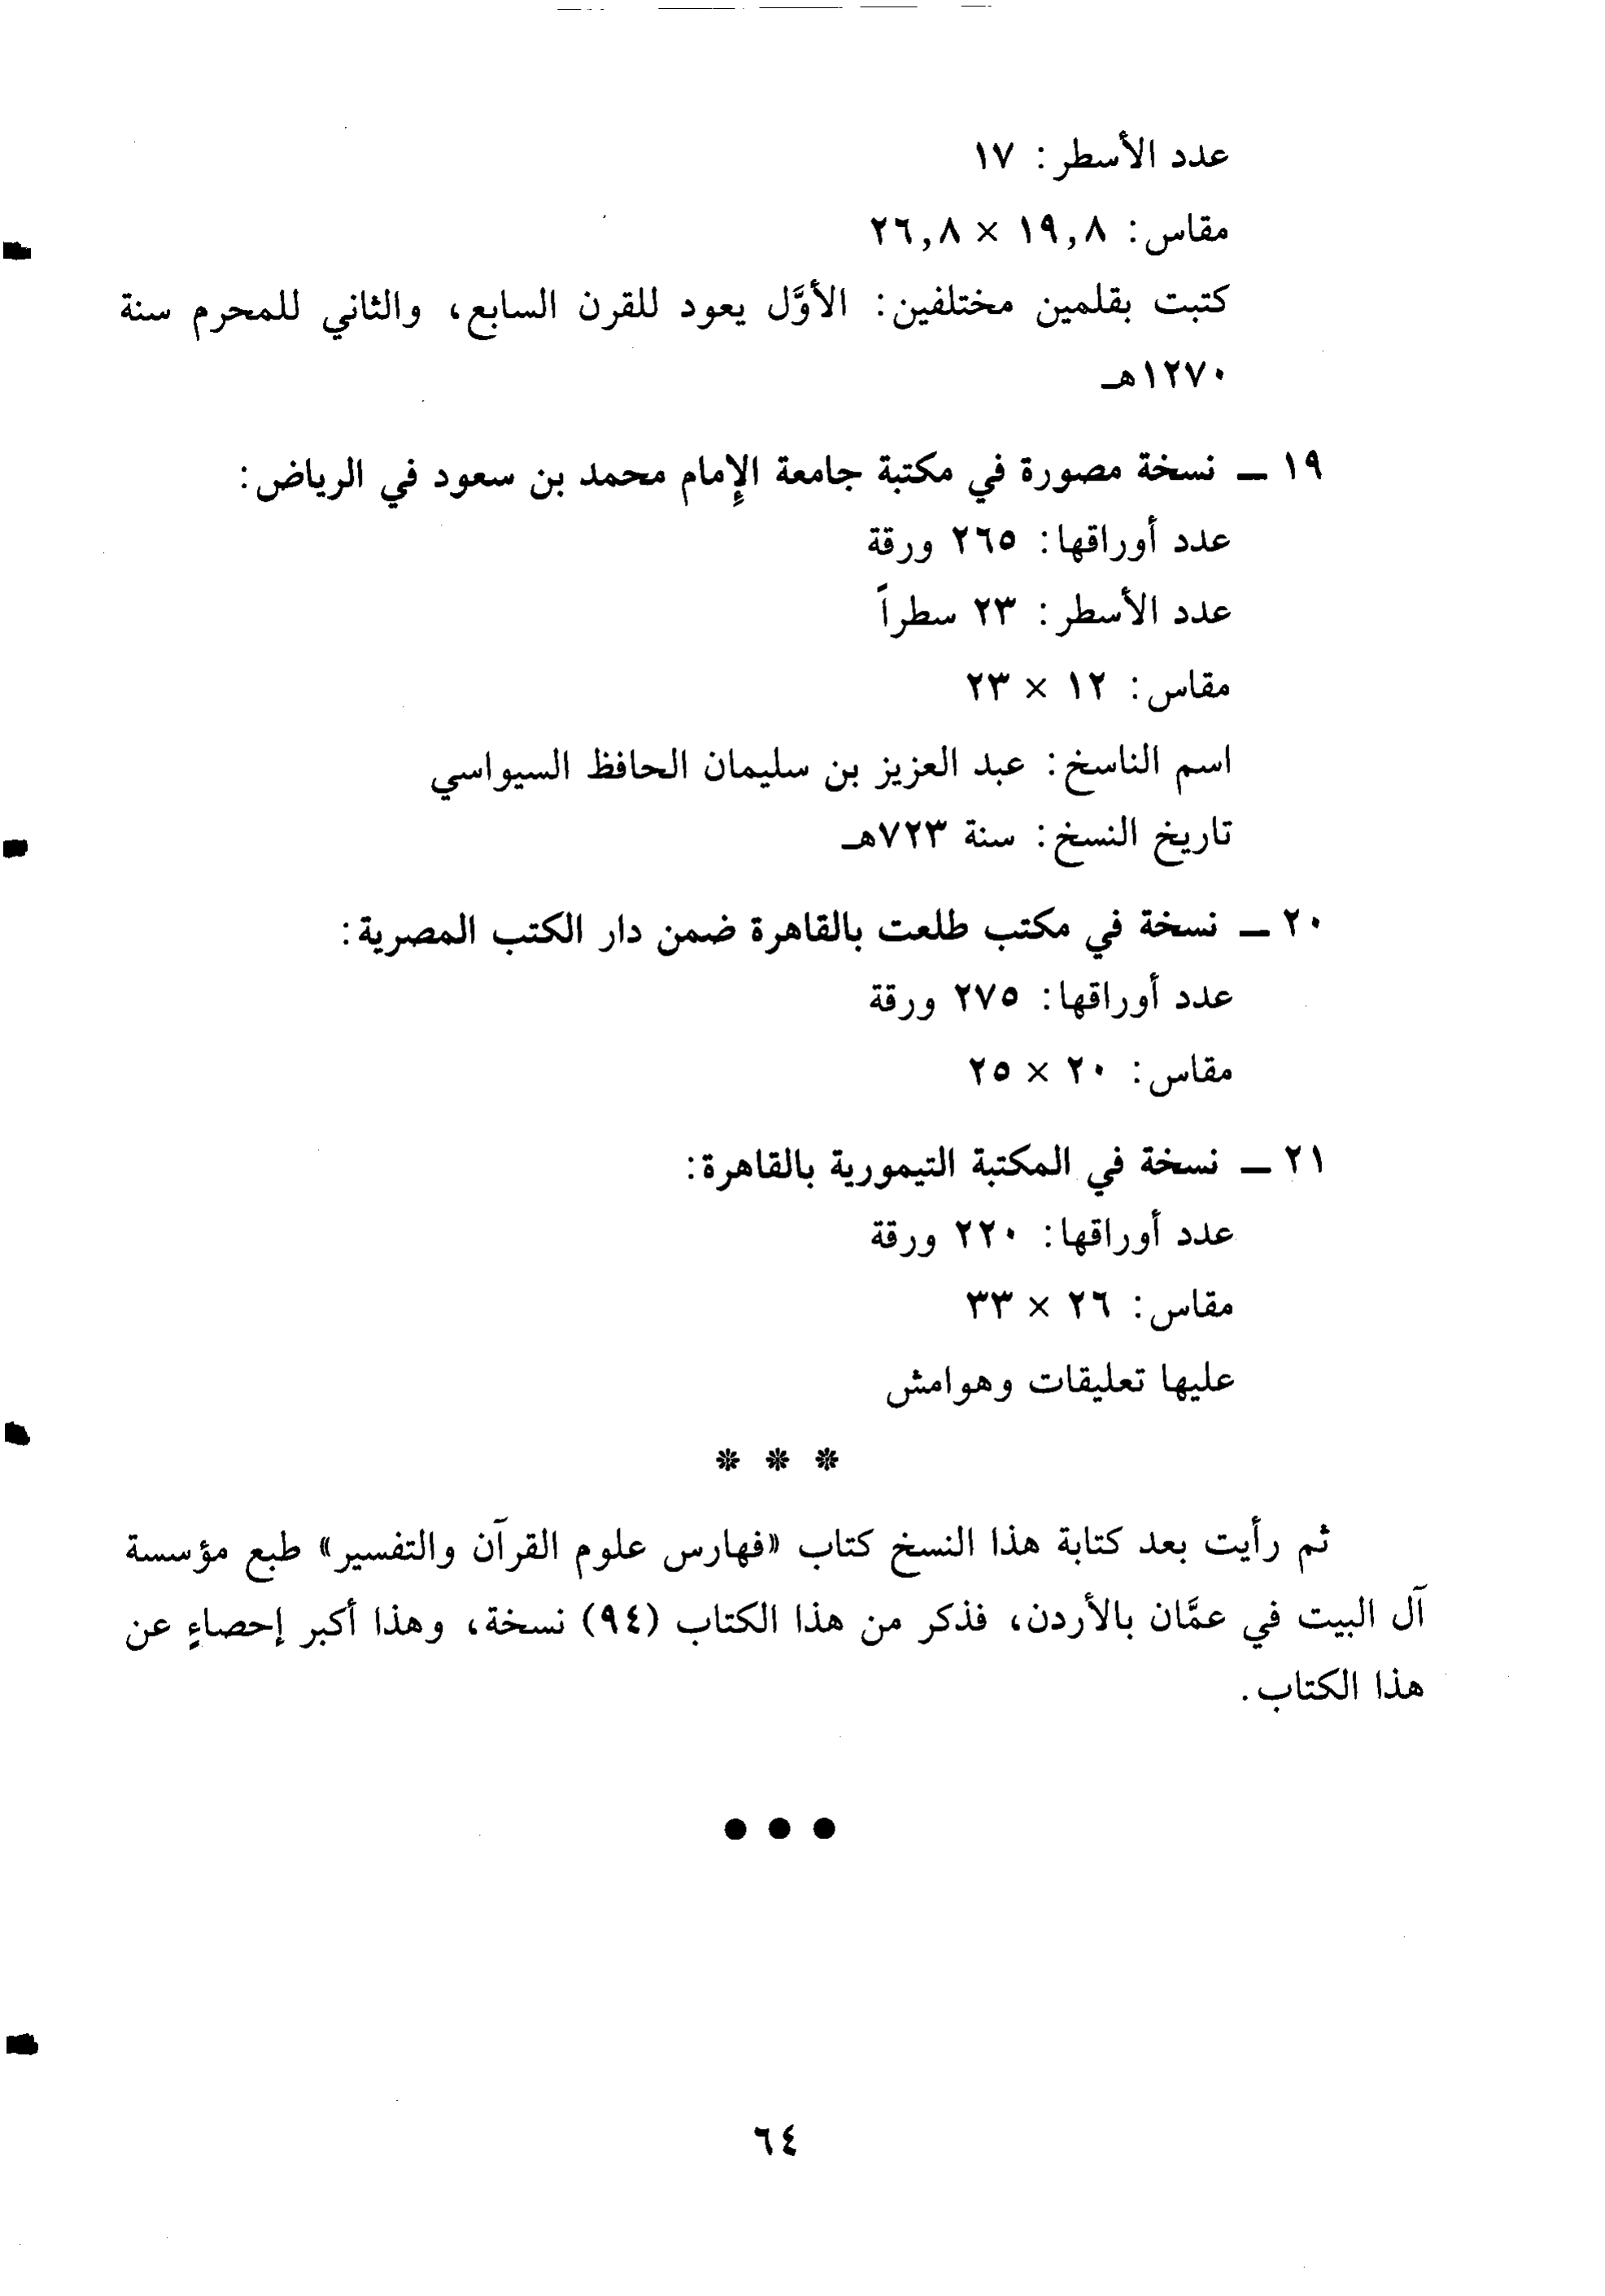 عدد الأسطر: ١٧
مقاس: ١٩,٨ × ٢٦,٨
كتبت بقلمين مختلفين: الأوَّل يعود للقرن السابع، والثاني للمحرم سنة
١٢٧٠هـ
١٩ ــ نسخة مصورة في مكتبة جامعة الإمام محمد بن سعود في الرياض:
عدد أوراقها: ٢٦٥ ورقة
عدد الأسطر: ٢٣ سطراً
مقاس: ١٢ × ٢٣
اسم الناسخ: عبد العزيز بن سليمان الحافظ السيواسي
تاريخ النسخ: سنة ٧٢٣هـ
٢٠ ــ نسخة في مكتب طلعت بالقاهرة ضمن دار الكتب المصرية:
عدد أوراقها: ٢٧٥ ورقة
مقاس: ٢٠ × ٢٥
٢١ ــ نسخة في المكتبة التيمورية بالقاهرة:
عدد أوراقها: ٢٢٠ ورقة
مقاس: ٢٦ × ٣٣
عليها تعليقات وهوامش
* * *
ثم رأيت بعد كتابة هذا النسخ كتاب «فهارس علوم القرآن والتفسير» طبع مؤسسة
آل البيت في عمَّان بالأردن، فذكر من هذا الكتاب (٩٤) نسخة، وهذا أكبر إحصاءٍ عن
هذا الكتاب.
● ● ●
٦٤